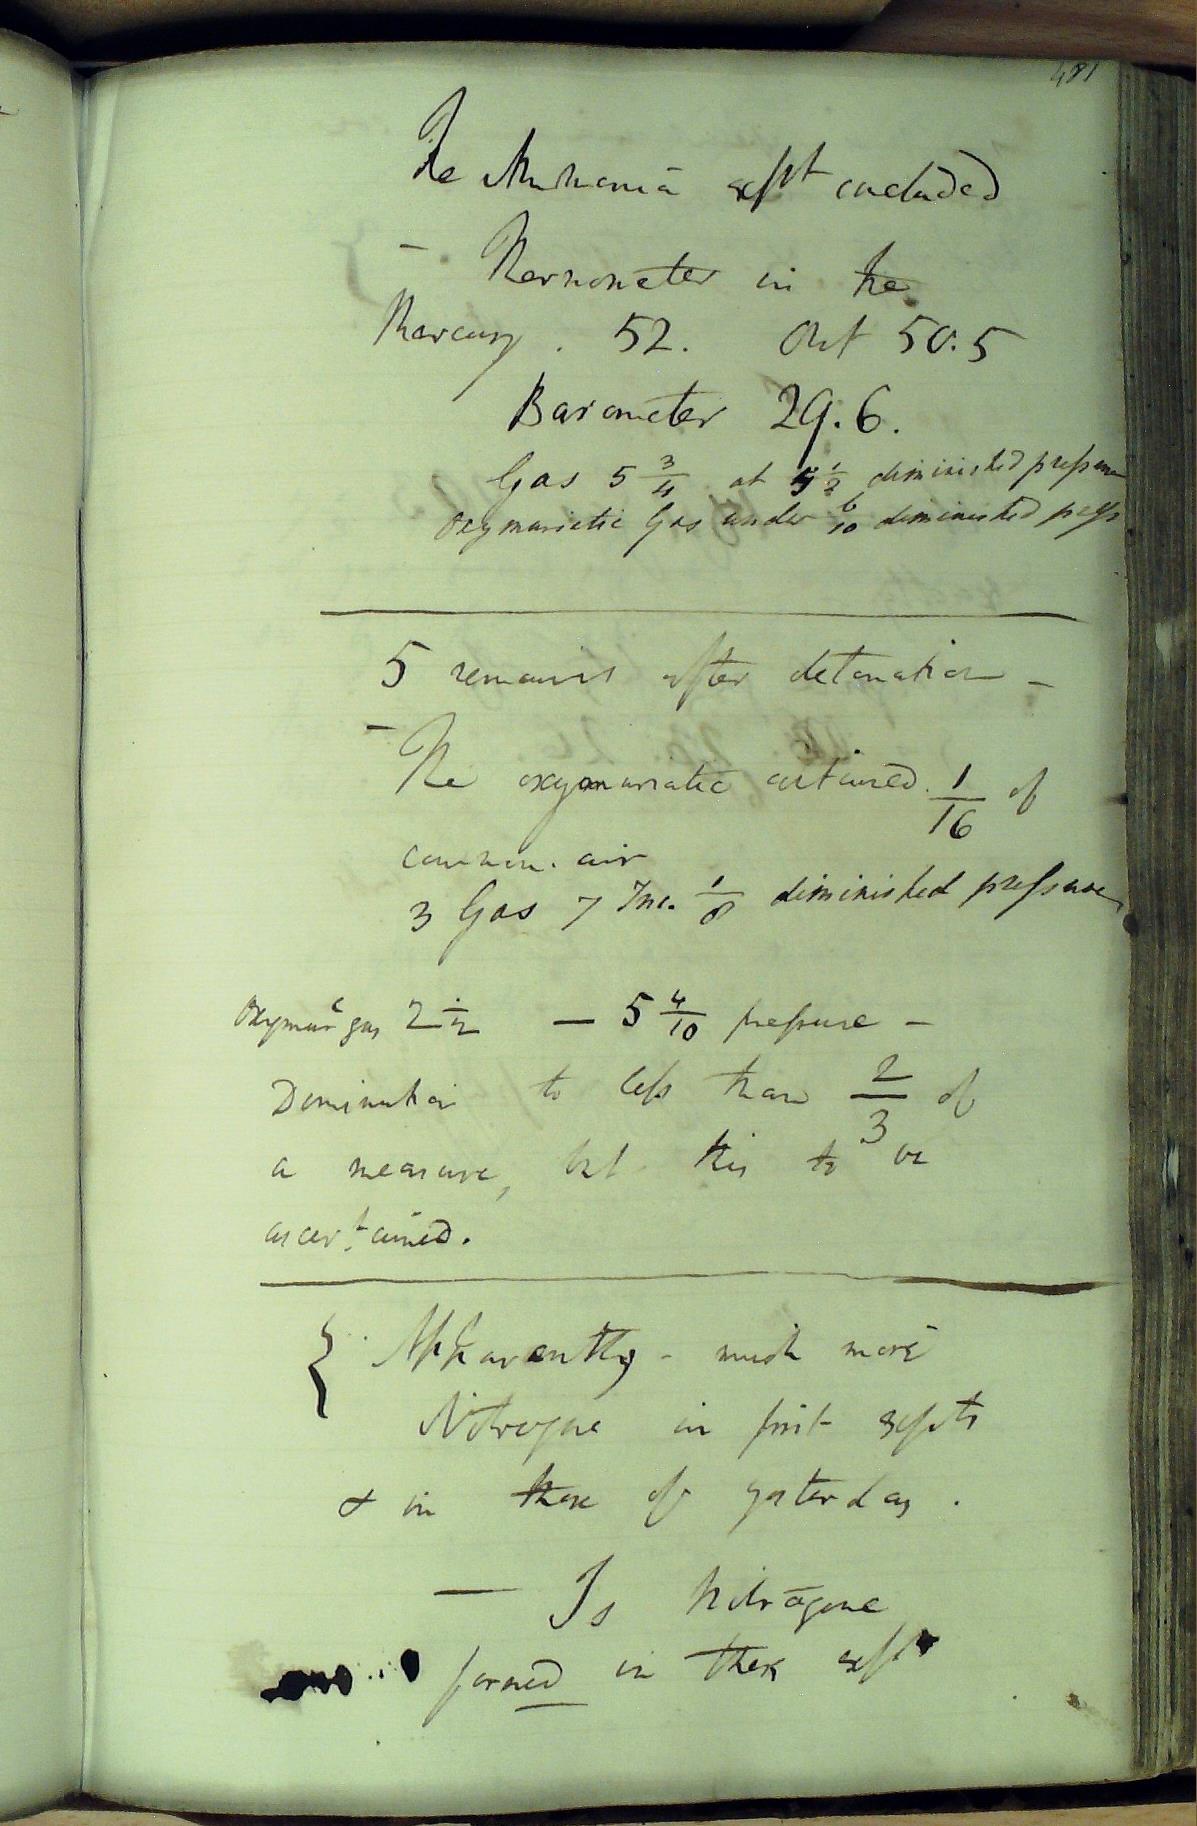 481
The Ammonia expt concluded
— Thermometer in the
Mercury . 52. Out 50.5
Barometer 29.6.
Gas 5 3/4 at 5 1/2 diminished pressure
oxymuriatic Gas under 6/10 diminished press
5 remains after detonation —
— The oxymuriatic contained 1/16 of
common air
3 Gas 7 Inc. 1/8 diminished pressure
Oxymurc gas 2 1/2 — 5 4/10 pressure —
Diminution to less than 2/3 of
a measure, but this to be
ascertained.
{ Apparently - much more
Nitrogene in first expts
& in those of yesterday .
— Is Nitrogene
formed in these expts